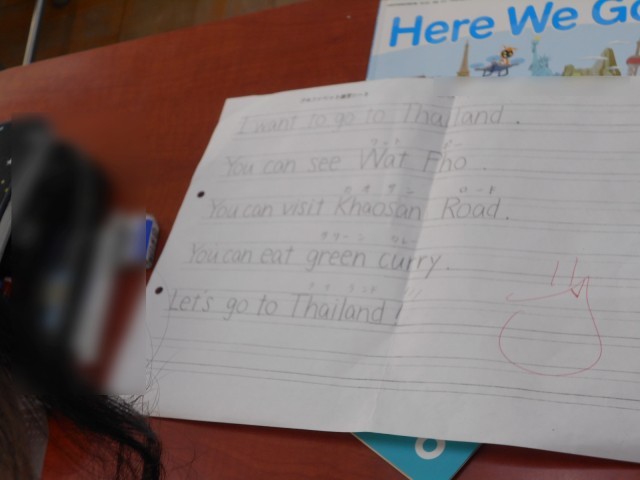 Here We Go
I want to go to Thailand.
You can see Wat Pho.
You can visit Khaosan Road.
You can eat green curry.
Let's go to Thailand!
6